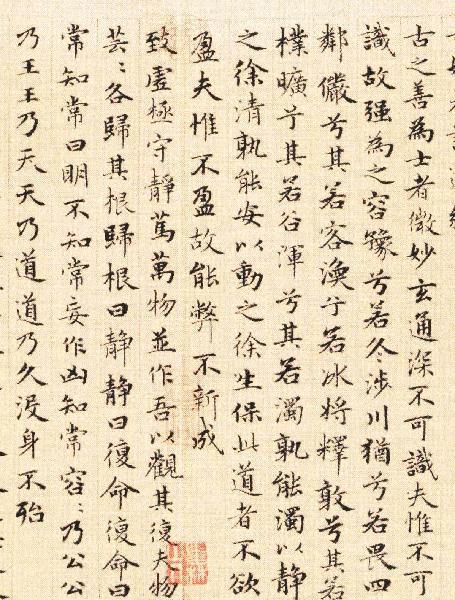 古之善為士者微妙玄通深不可識夫惟不可
識故强為之容豫兮若冬涉川猶兮若畏四
鄰儼兮其若客渙兮若冰將釋敦兮其若
樸曠兮其若谷渾兮其若濁孰能濁以靜
之徐清孰能安以動之徐生保此道者不欲
盈夫惟不盈故能弊不新成
致虛極守靜篤萬物並作吾以觀其復夫物
芸〻各歸其根歸根曰靜靜曰復命復命曰
常知常曰明不知常妄作凶知常容〻乃公公
乃王王乃天天乃道道乃久沒身不殆